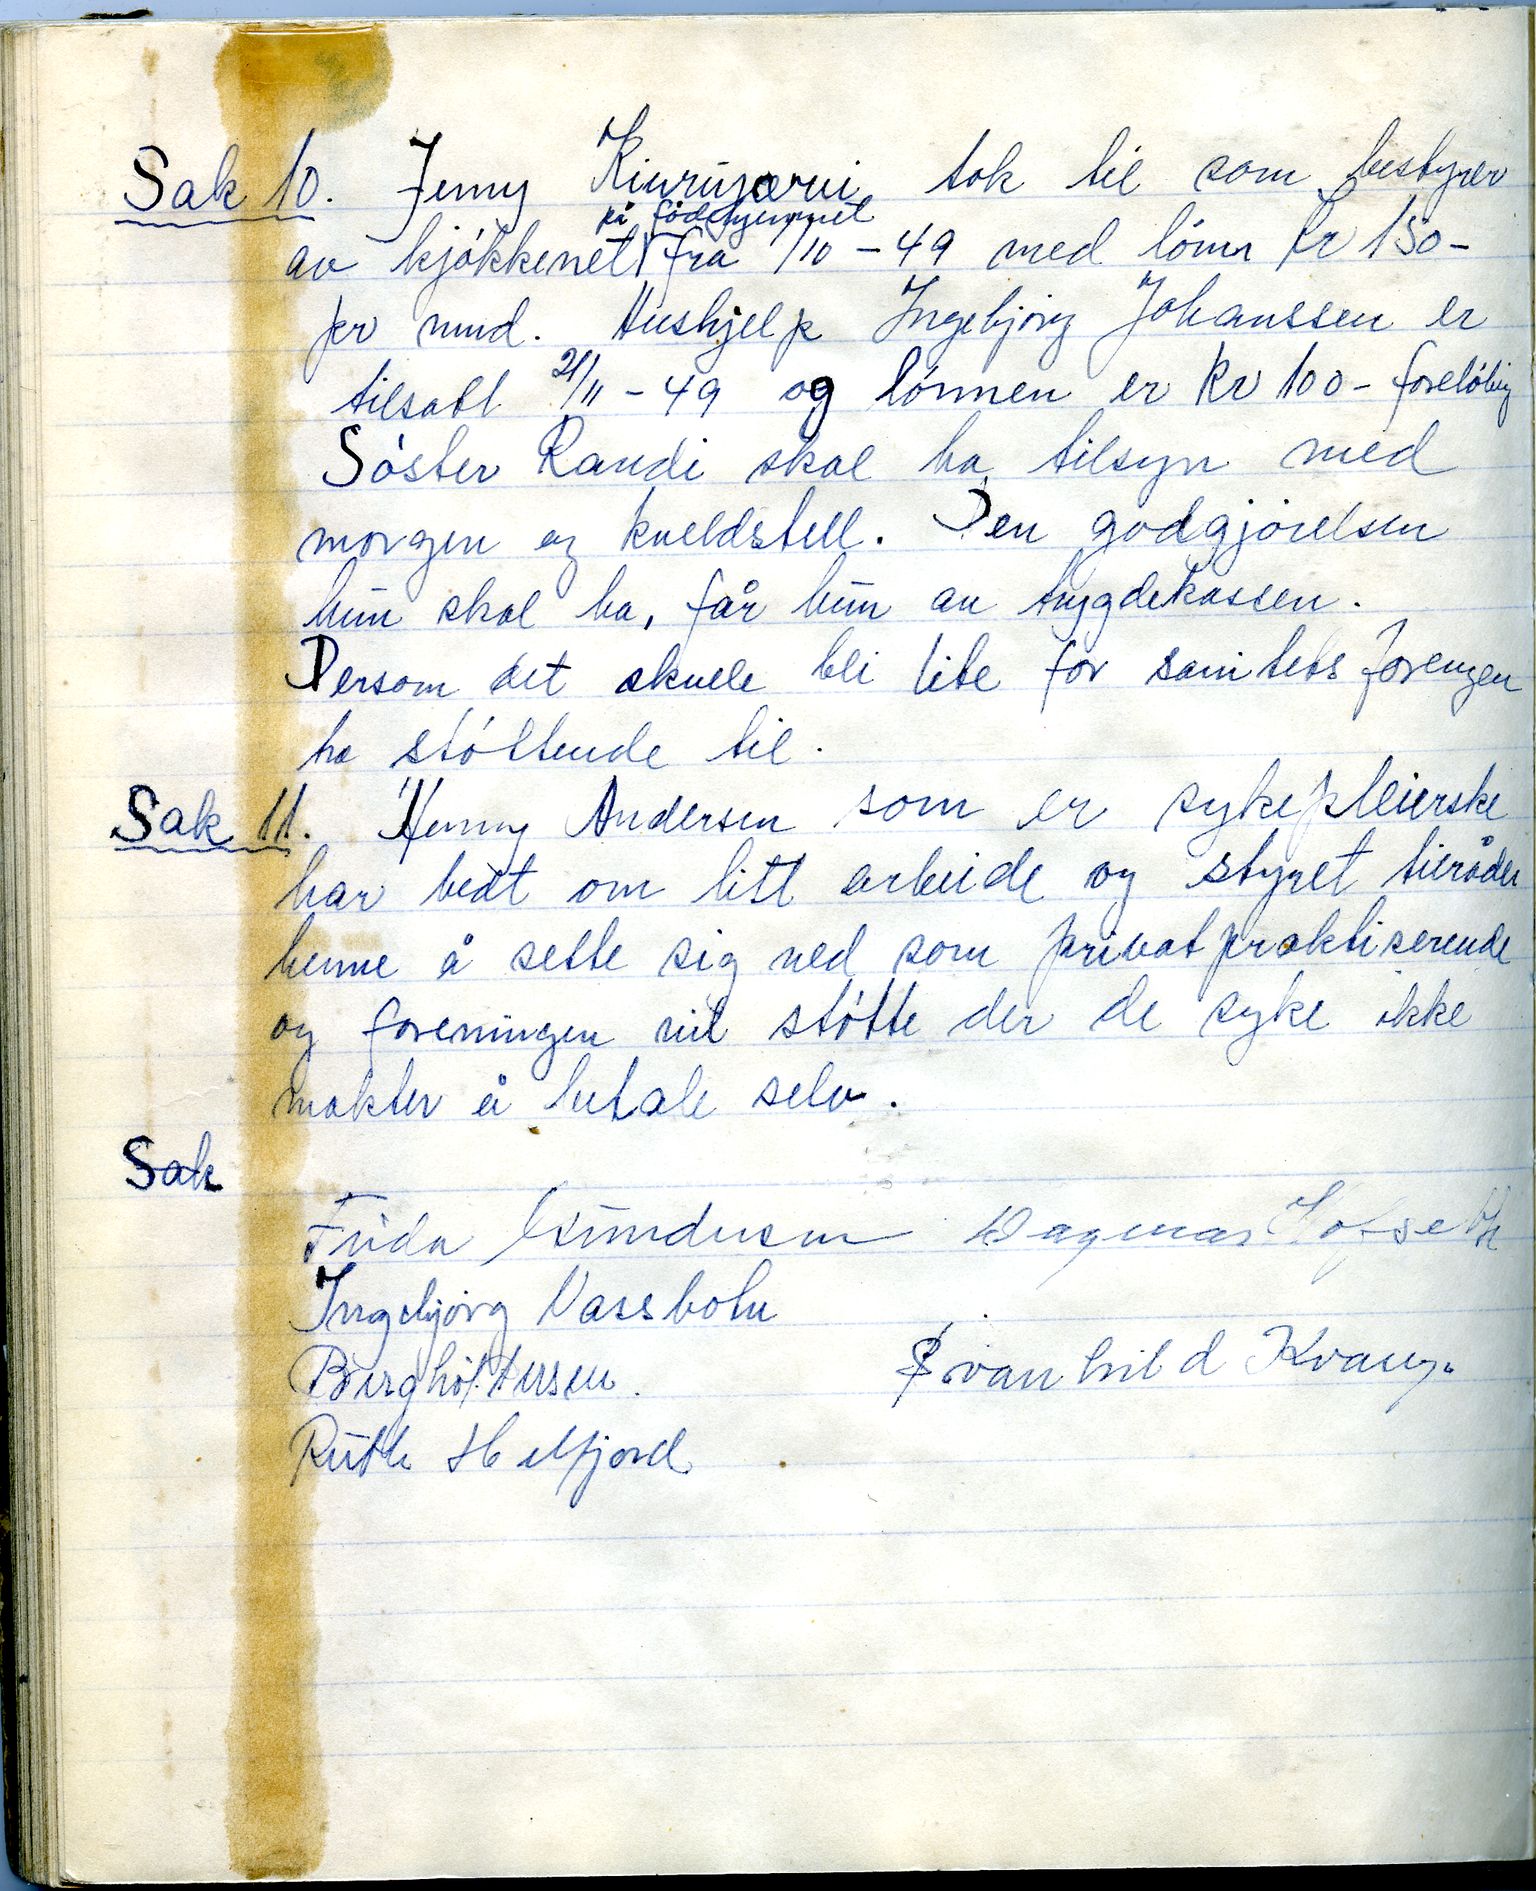 Sak 10. Jenny Kiurujærvi tok til som bestyrer
på födehjemmet
av kjøkkenet fra 1/10 - 49 med lønn kr 150-
pr mnd. Hushjelp Ingebjørg Johanssen er
tilsatt 21/11 - 49 og lønnen er kr 100- foreløbig
Søster Randi skal ha tilsyn med
morgen og kveldstell. Den godgjørelsen
hun skal ha, får hun av trygdekassen.
Dersom det skulle bli lite for sanitetsforengen
ha støttende til.
Sak 11. Henny Andersen som er sykepleierske
har bedt om litt arbeide og styret tilråder
henne å sette sig ned som privatpraktiserende
og foreningen vil støtte der de syke ikke
makter å betale selv.
Sak
Frida Gundersen Dagmar Hofseth
Ingebjørg Vassbotn
Svanhild Kvang.
Ruth Helfjord